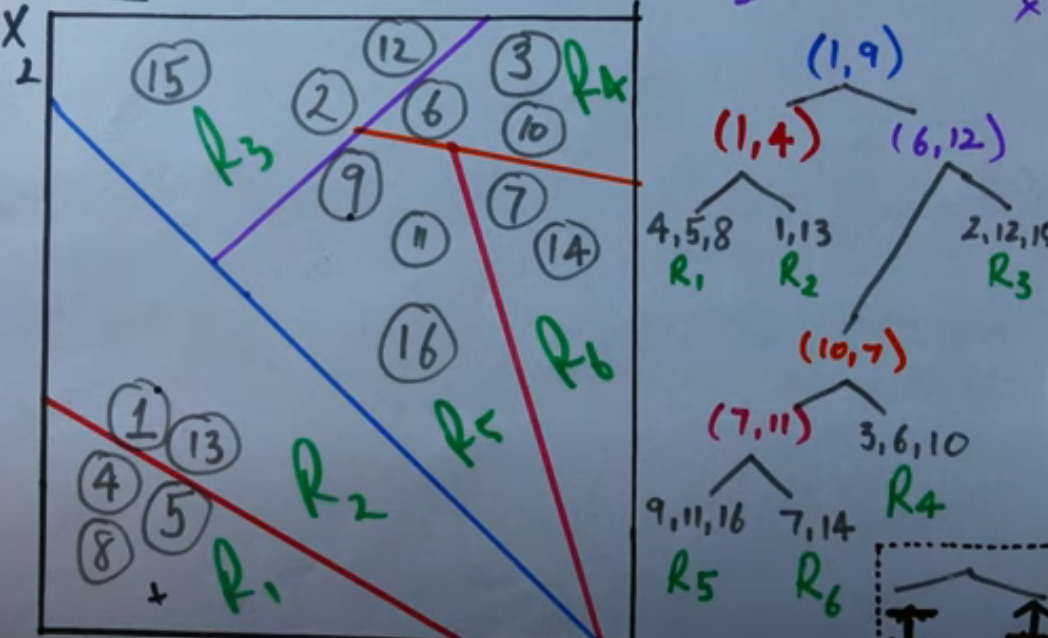 X
2
15
12
3
R4
2
6
10
R3
9
7
11
14
16
R6
R5
1
13
4
5
R2
8
R1
+
(1,9)
(1,4)
(6,12)
4,5,8
1,13
R1
R2
R3
(10,7)
(7,11)
3,6,10
R4
9,11,16
7,14
R5
R6
2,12,
x